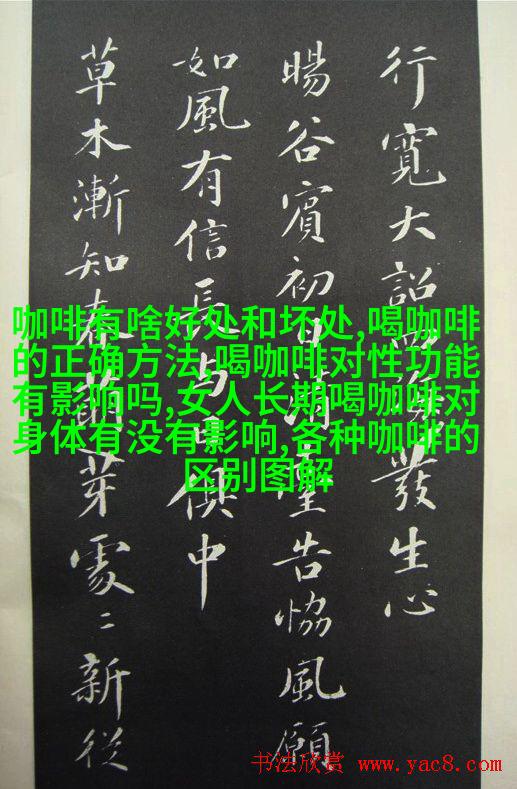 行寬大詔四海發生心
暘谷賓初日清臺告協風願
如風有信長與日俱中
草木漸知春萌芽處〻新從
咖啡有啥好处和坏处,喝咖啡
的正确方法,喝咖啡对性功能
有影响吗,女人长期喝咖啡对
身体有没有影响,各种咖啡的
区别图解
书法欣赏 www.yac8.com